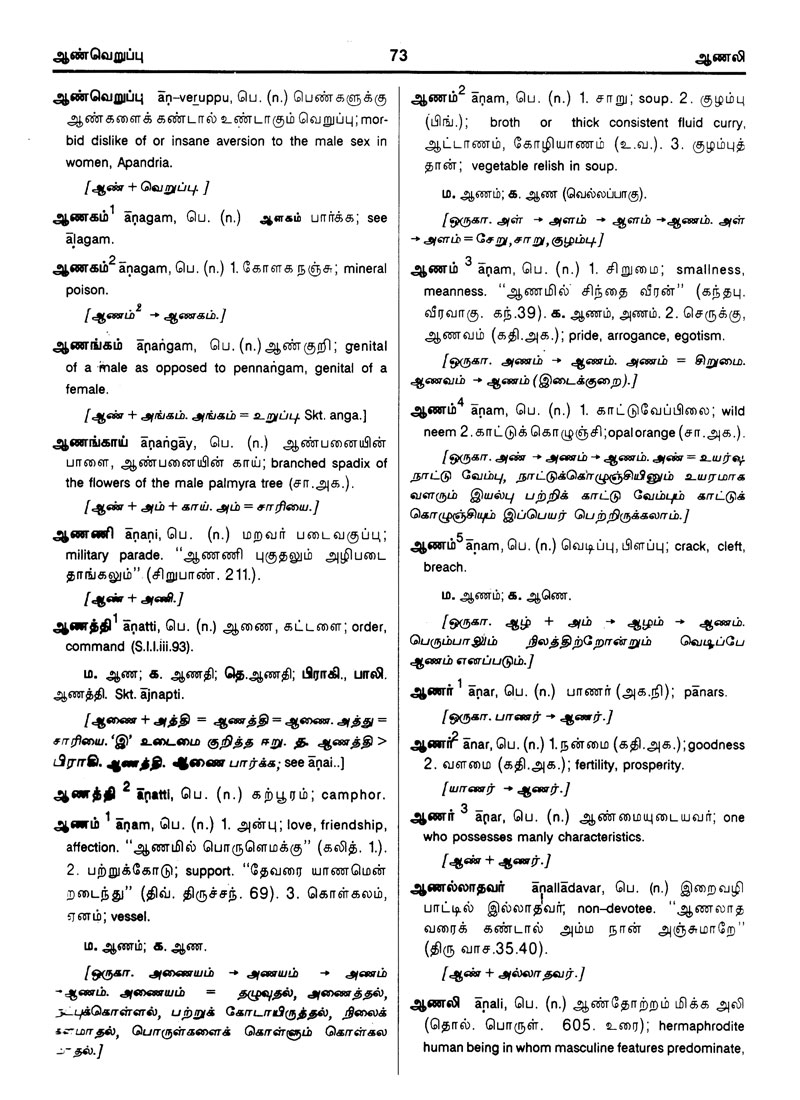 ஆண்வெறுப்பு 73 ஆணலி
ஆண்வெறுப்பு āṇ–veṟuppu, பெ. (n.) பெண்களுக்கு
ஆண்களைக் கண்டால் உண்டாகும் வெறுப்பு; mor-
bid dislike of or insane aversion to the male sex in
women, Apandria.
[ஆண் + வெறுப்பு.]
ஆணகம்1 āṇagam, பெ. (n.) ஆளகம் பார்க்க; see
āḷagam.
ஆணகம்2 āṇagam, பெ. (n.) 1. கோளகநஞ்சு; mineral
poison.
[ஆணம்2 → ஆணகம்.]
ஆணங்கம் āṇaṅgam, பெ. (n.) ஆண்குறி; genital
of a male as opposed to pennaṅgam, genital of a
female.
[ஆண் + அங்கம். அங்கம் = உறுப்பு. Skt. anga.]
ஆணங்காய் āṇaṅgāy, பெ. (n.) ஆண்பனையின்
பாளை, ஆண்பனையின் காய்; branched spadix of
the flowers of the male palmyra tree (சா.அக.).
[ஆண் + அம் + காய். அம் = சாரியை.]
ஆணணி āṇaṇi, பெ. (n.) மறவர் படைவகுப்பு;
military parade. “ஆணணி புகுதலும் அழிபடை
தாங்கலும்” (சிறுபாண். 211.).
[ஆண் + அணி.]
ஆணத்தி1 āṇatti, பெ. (n.) ஆணை, கட்டளை; order,
command (S.I.I.iii.93).
ம. ஆண; க. ஆணதி; தெ.ஆணதி; பிராகி., பாலி.
ஆணத்தி. Skt. ājnapti.
[ஆணை + அத்தி = ஆணத்தி = ஆணை. அத்து =
சாரியை. ‘இ’ உடைமை குறித்த ஈறு. த. ஆணத்தி >
பிராகி. ஆணத்தி. ஆணை பார்க்க; see āṇai..]
ஆணத்தி 2 āṇatti, பெ. (n.) கற்பூரம்; camphor.
ஆணம் 1 āṇam, பெ. (n.) 1. அன்பு; love, friendship,
affection. “ஆணமில் பொருளெமக்கு” (கலித். 1.).
2. பற்றுக்கோடு; support. “தேவரை யாணமென்
றடைந்து” (திவ். திருச்சந். 69). 3. கொள்கலம்,
ஏனம்; vessel.
ம. ஆணம்; க. ஆண.
[ஒருகா. அணையம் → அணயம் → அணம்
→ஆணம். அணையம் = தழுவுதல், அணைத்தல்,
நட்புக்கொள்ளல், பற்றுக் கோடாயிருத்தல், நிலைக்
களமாதல், பொருள்களைக் கொள்ளும் கொள்கல
தல்.]
ஆணம்2 āṇam, பெ. (n.) 1. சாறு; soup. 2. குழம்பு
(பிங்.); broth or thick consistent fluid curry,
ஆட்டாணம், கோழியாணம் (உ.வ.). 3. குழம்புத்
தான்; vegetable relish in soup.
ம. ஆணம்; க. ஆண (வெல்லப்பாகு).
[ஒருகா. அள் → அளம் → ஆளம் →ஆணம். அள்
→ அளம் = சேறு, சாறு, குழம்பு.]
ஆணம் 3 āṇam, பெ. (n.) 1. சிறுமை; smallness,
meanness. “ஆணமில் சிந்தை வீரன்” (கந்தபு.
வீரவாகு. கந்.39). க. ஆணம், அணம். 2. செருக்கு,
ஆணவம் (கதி.அக.); pride, arrogance, egotism.
[ஒருகா. அணம் → ஆணம். அணம் = சிறுமை.
ஆணவம் → ஆணம் (இடைக்குறை).]
ஆணம்4 āṇam, பெ. (n.) 1. காட்டுவேப்பிலை; wild
neem 2.காட்டுக் கொழுஞ்சி;opal orange (சா.அக.).
[ஒருகா. அண் → அணம் → ஆணம். அண் = உயர்வு.
நாட்டு வேம்பு, நாட்டுக்கொழுஞ்சியினும் உயரமாக
வளரும் இயல்பு பற்றிக் காட்டு வேம்பும் காட்டுக்
கொழுஞ்சியும் இப்பெயர் பெற்றிருக்கலாம்.]
ஆணம்5 āṇam, பெ. (n.) வெடிப்பு, பிளப்பு; crack, cleft,
breach.
ம. ஆணம்; க. ஆணெ.
[ஒருகா. ஆழ் + அம் → ஆழம் → ஆணம்.
பெரும்பாலும் நிலத்திற்றோன்றும் வெடிப்பே
ஆணம் எனப்படும்.]
ஆணர் 1 āṇar, பெ. (n.) பாணர் (அக.நி); pāṇars.
[ஒருகா. பாணர் → ஆணர்.]
ஆணர்2 āṇar, பெ. (n.) 1.நன்மை (கதி.அக.);goodness
2. வளமை (கதி.அக.); fertility, prosperity.
[யாணர் → ஆணர்.]
ஆணர் 3 āṇar, பெ. (n.) ஆண்மையுடையவர்; one
who possesses manly characteristics.
[ஆண் + ஆணர்.]
ஆணல்லாதவர் āṇallādavar, பெ. (n.) இறைவழி
பாட்டில் இல்லாதவர்; non-devotee. “ஆணலாத
வரைக் கண்டால் அம்ம நான் அஞ்சுமாறே”
(திரு வாச.35.40).
[ஆண் + அல்லாதவர்.]
ஆணலி āṇali, பெ. (n.) ஆண்தோற்றம் மிக்க அலி
(தொல். பொருள். 605. உரை); hermaphrodite
human being in whom masculine features predominate,